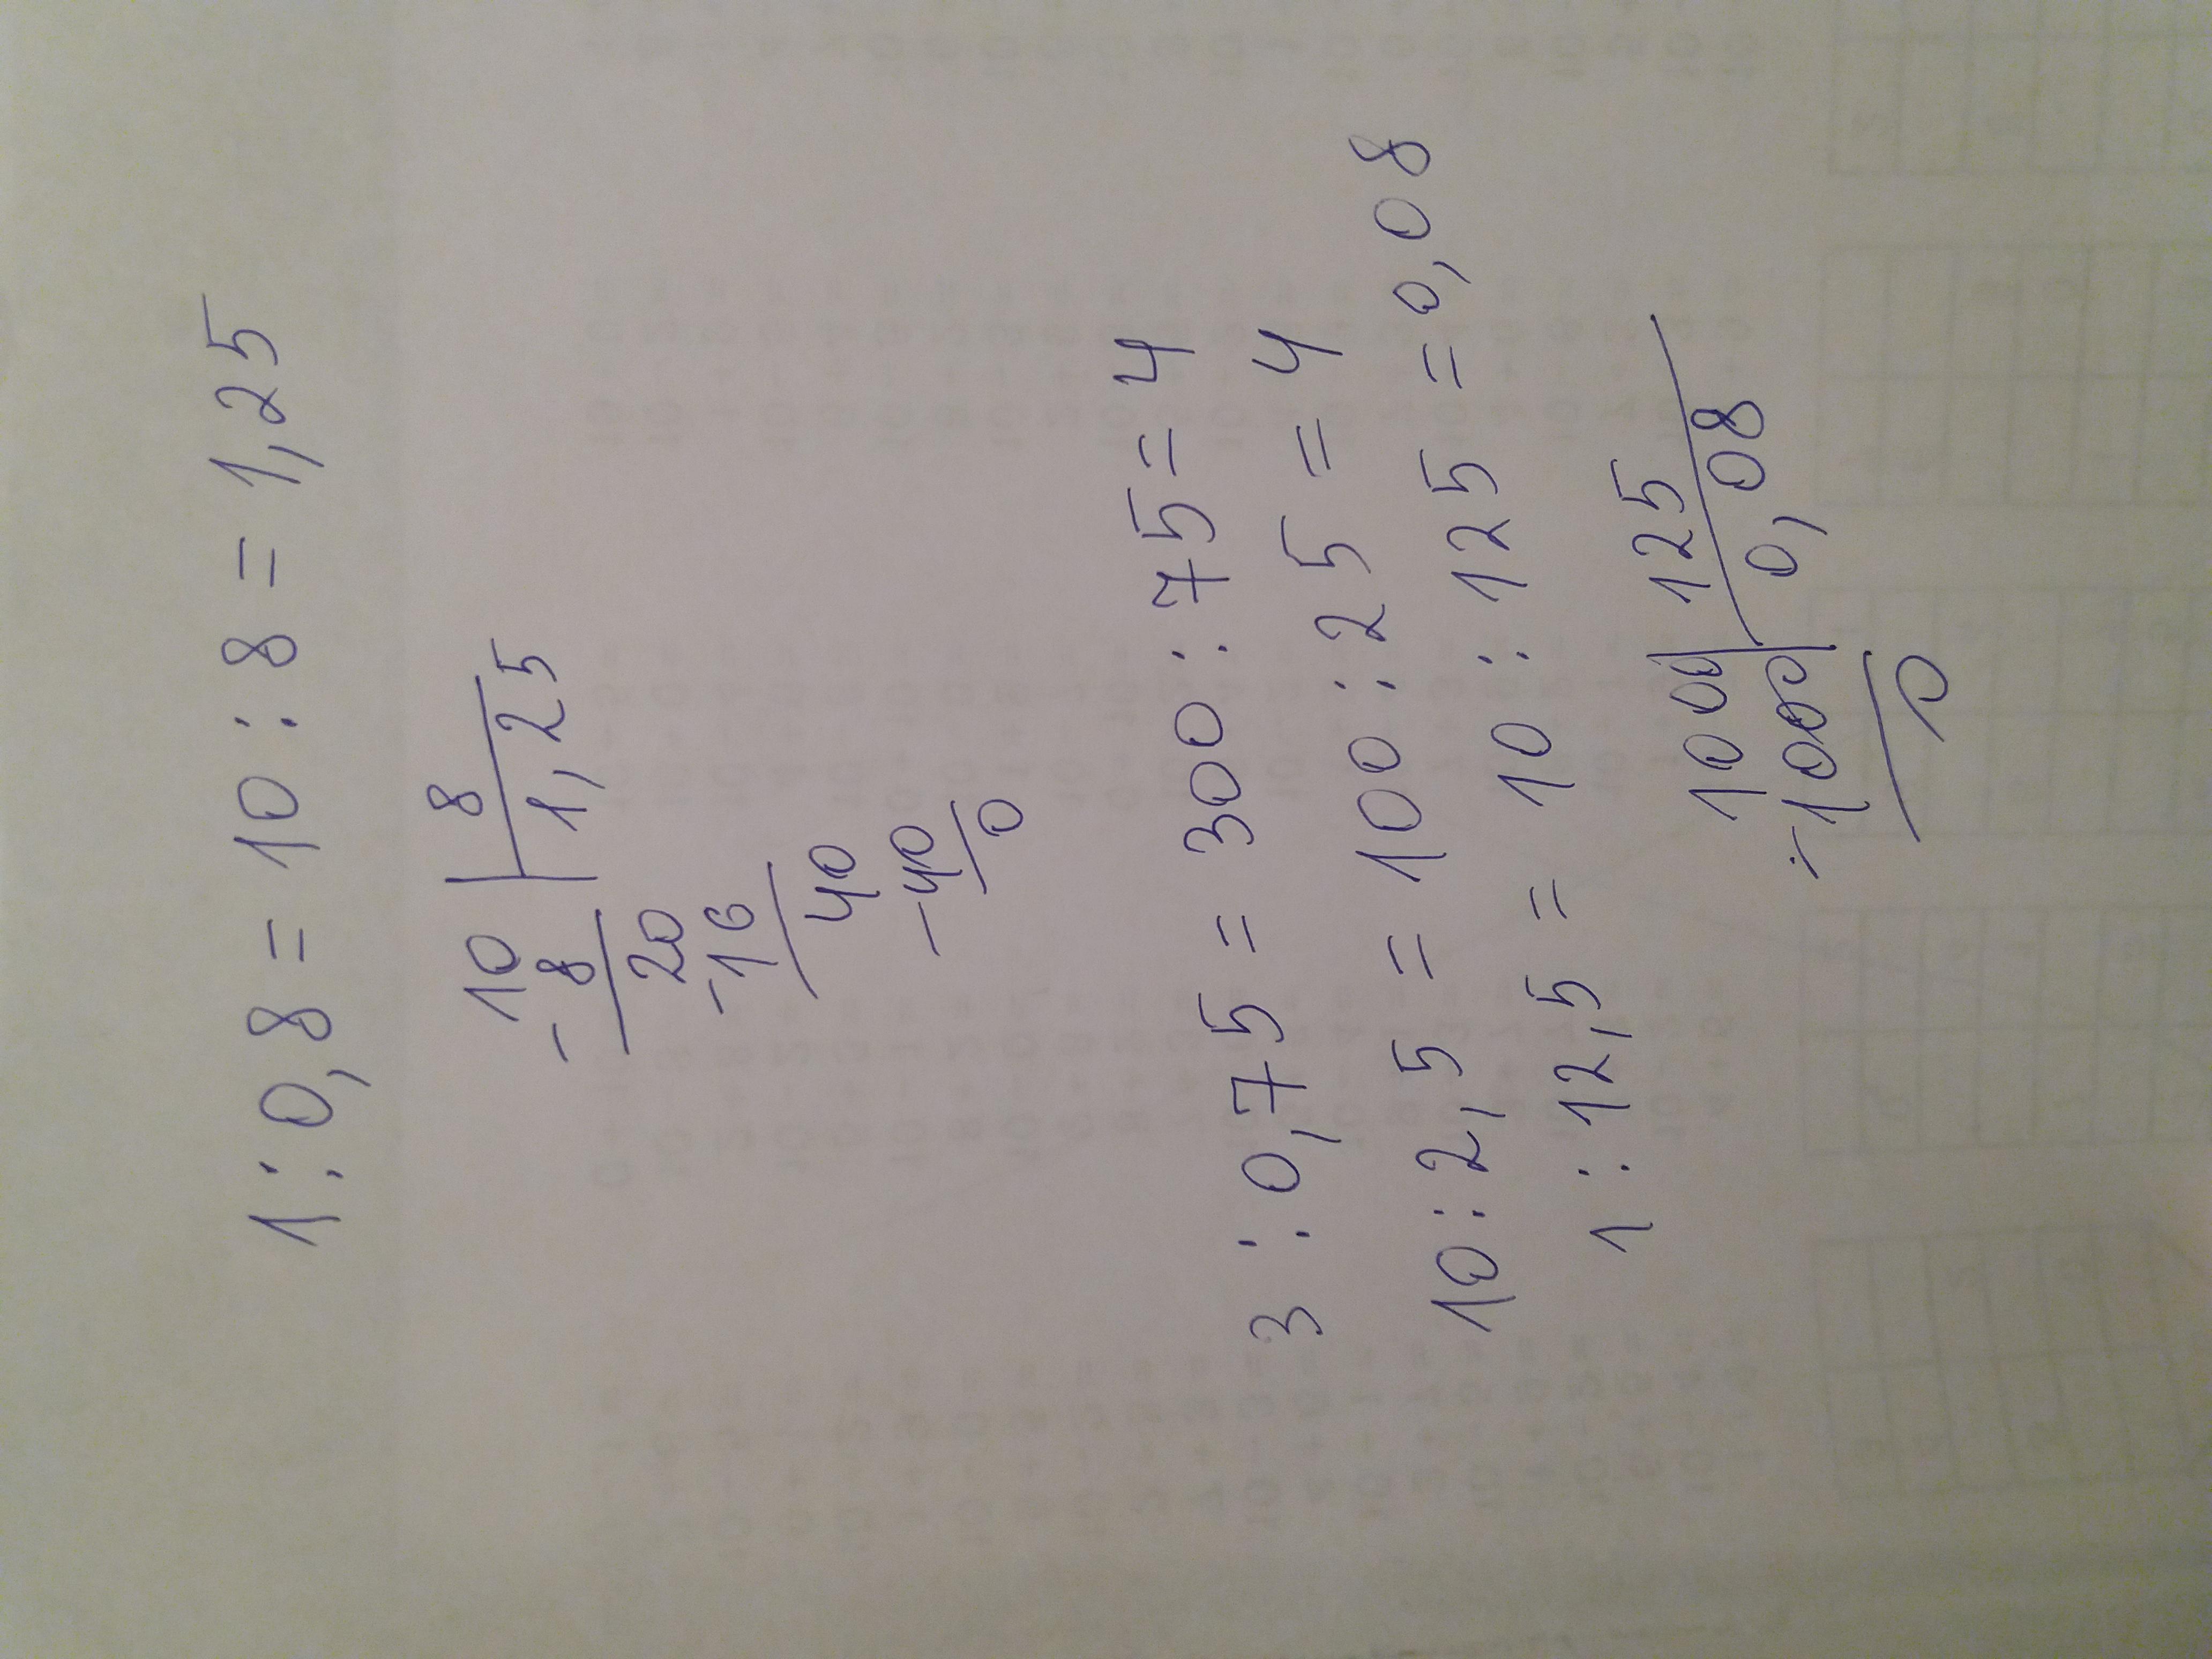 1 : 0,8 = 10 : 8 = 1,25
10 | 8
-8 | 1,25
20
-16
40
-40
0
3 : 0,75 = 300 : 75 = 4
10 : 2,5 = 100 : 25 = 4
1 : 12,5 = 10 : 125 = 0,08
1000 | 125
-1000 | 0,08
0